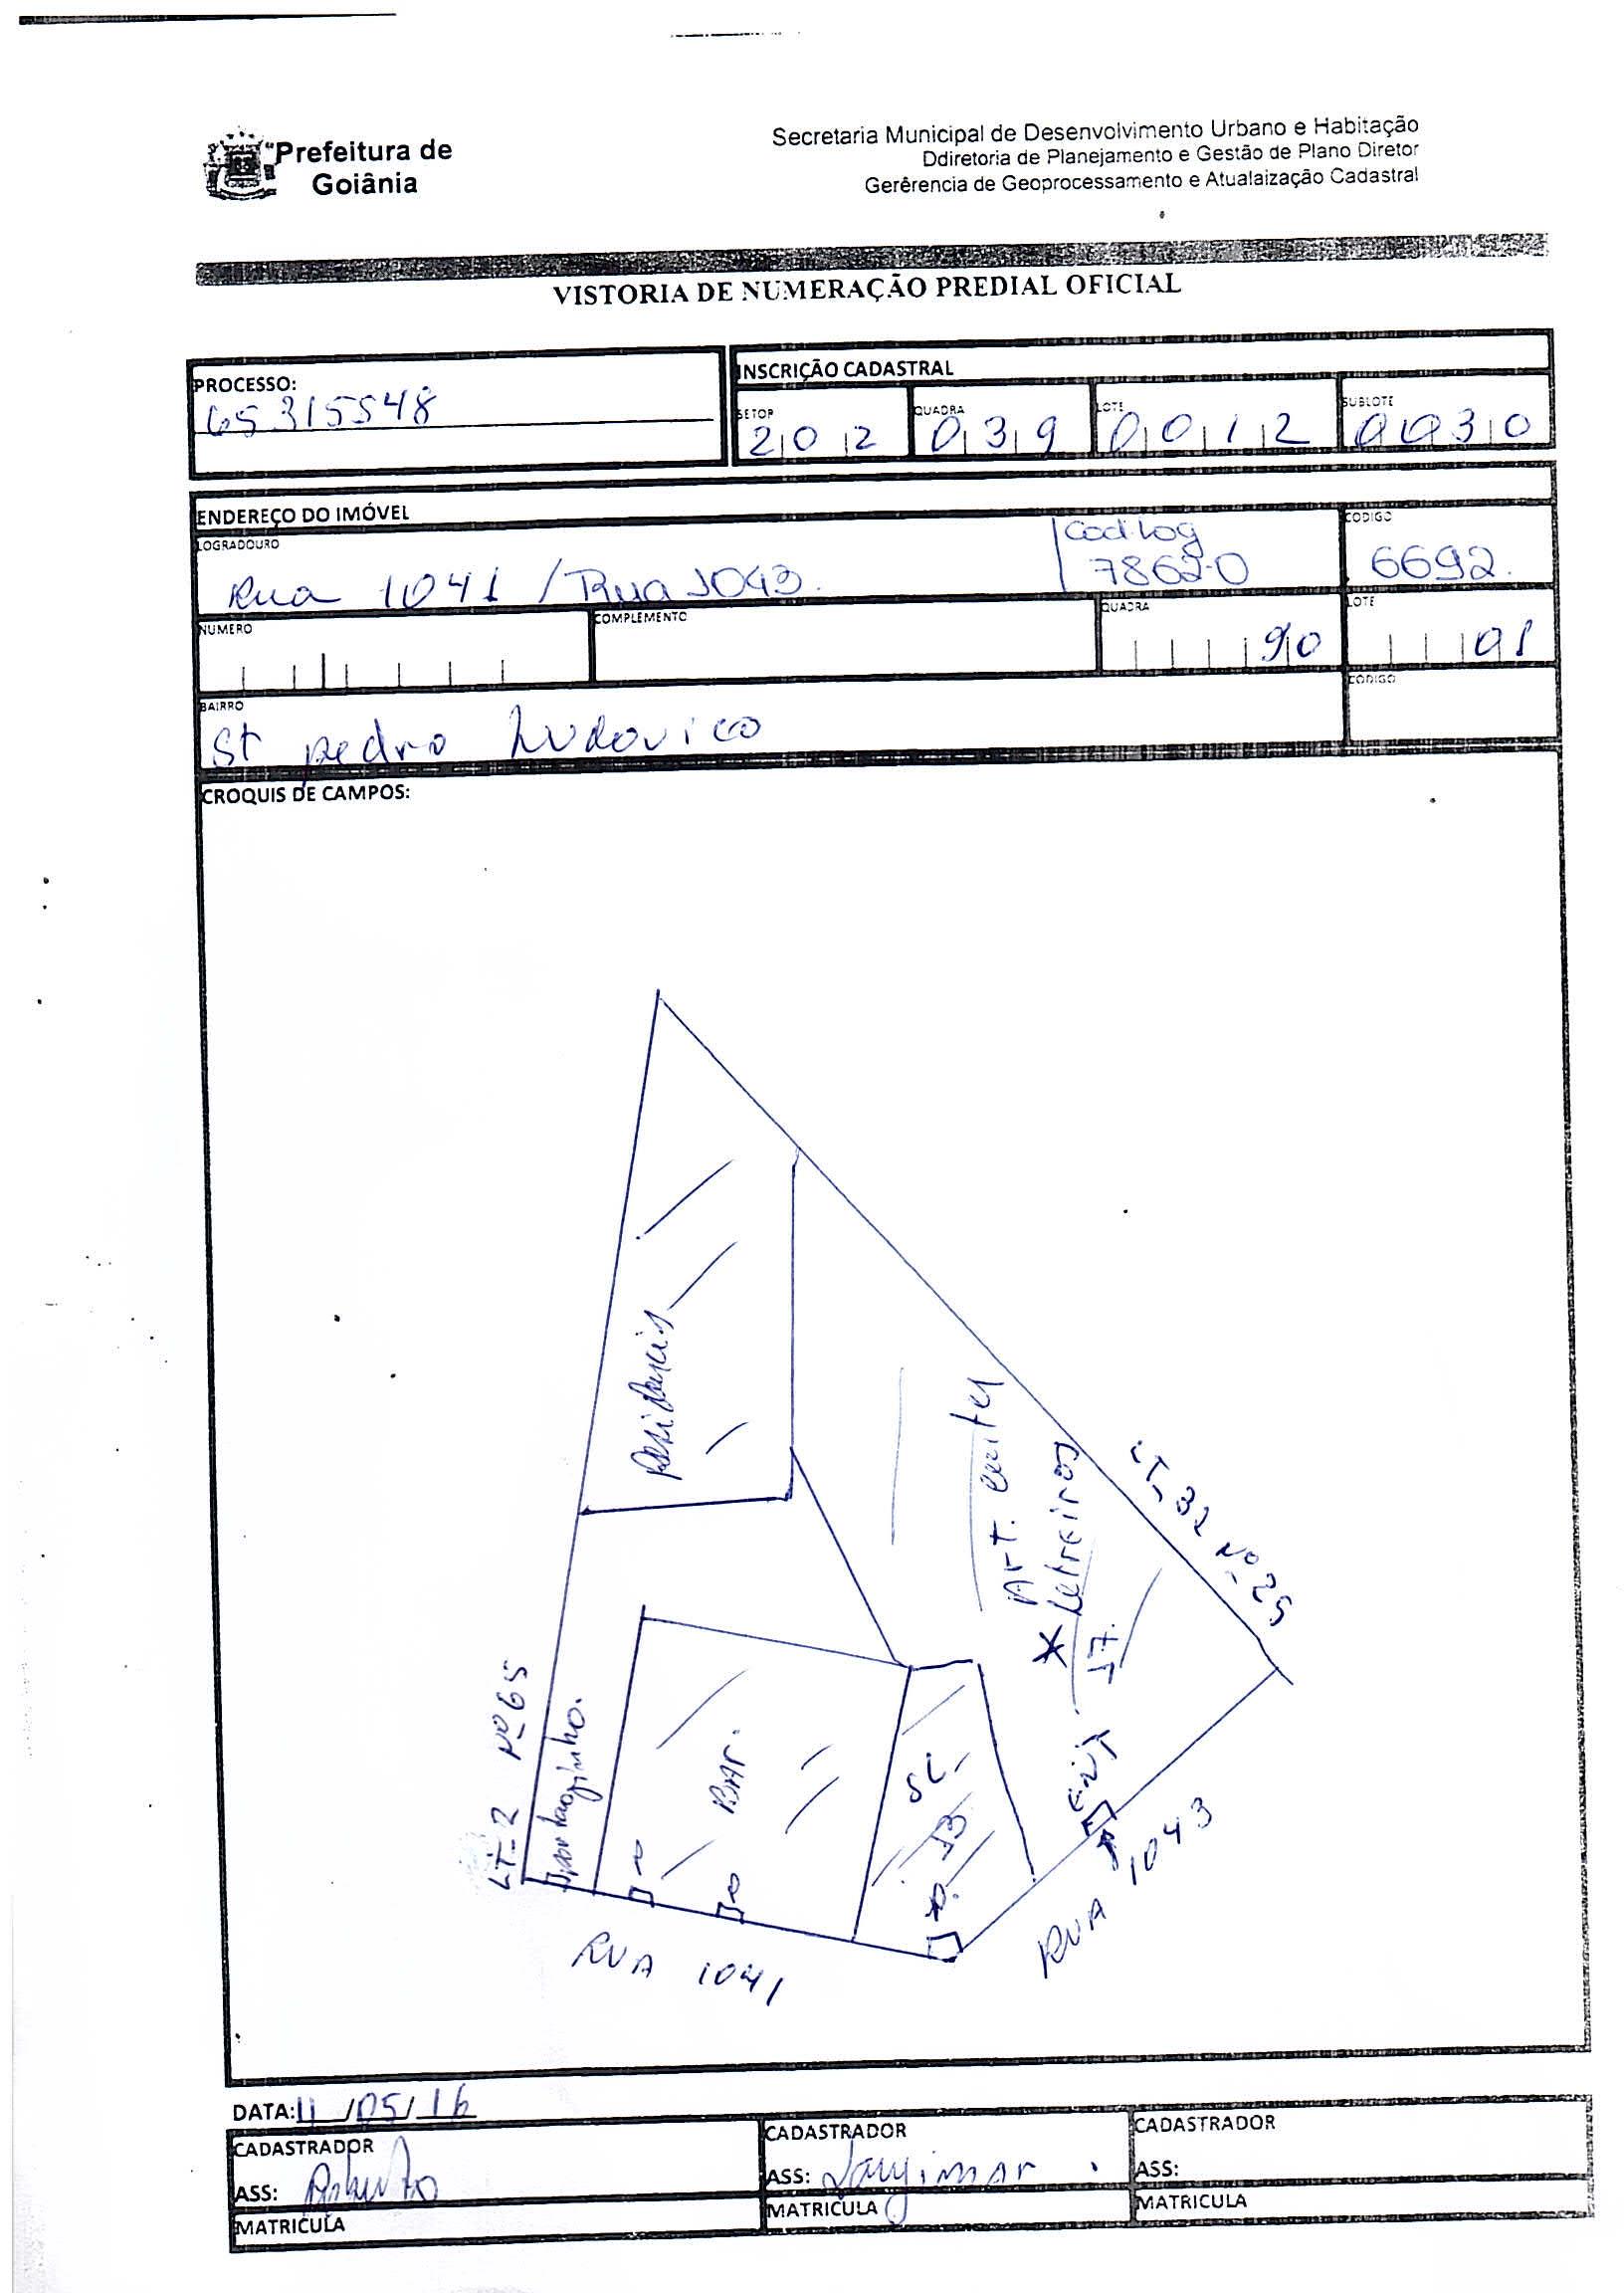 Prefeitura de
Goiânia
Secretaria Municipal de Desenvolvimento Urbano e Habitação
Ddiretoria de Planejamento e Gestão de Plano Diretor
Gerêrencia de Geoprocessamento e Atualaização Cadastral
VISTORIA DE NUMERAÇÃO PREDIAL OFICIAL
PROCESSO:
65315548
INSCRIÇÃO CADASTRAL
SETOR
202
QUADRA
039
LOTE
0012
SUBLOTE
0030
ENDEREÇO DO IMÓVEL
LOGRADOURO
Rua 1041 / Rua 1043.
Cod. Log
78620
CODIGO
6692.
NUMERO
COMPLEMENTO
QUADRA
90
LOTE
01
BAIRRO
St pedro Ludovico
CODIGO
CROQUIS DE CAMPOS:
Residencia
Art.
* Letreiros
17.
LT-32 Nº 25
LT-2 Nº 65
portaozinho.
BAR.
SL
13
RUA 1041
RUA 1043
DATA: 11/05/16
CADASTRADOR
ASS:
MATRICULA
CADASTRADOR
ASS:
MATRICULA
CADASTRADOR
ASS:
MATRICULA